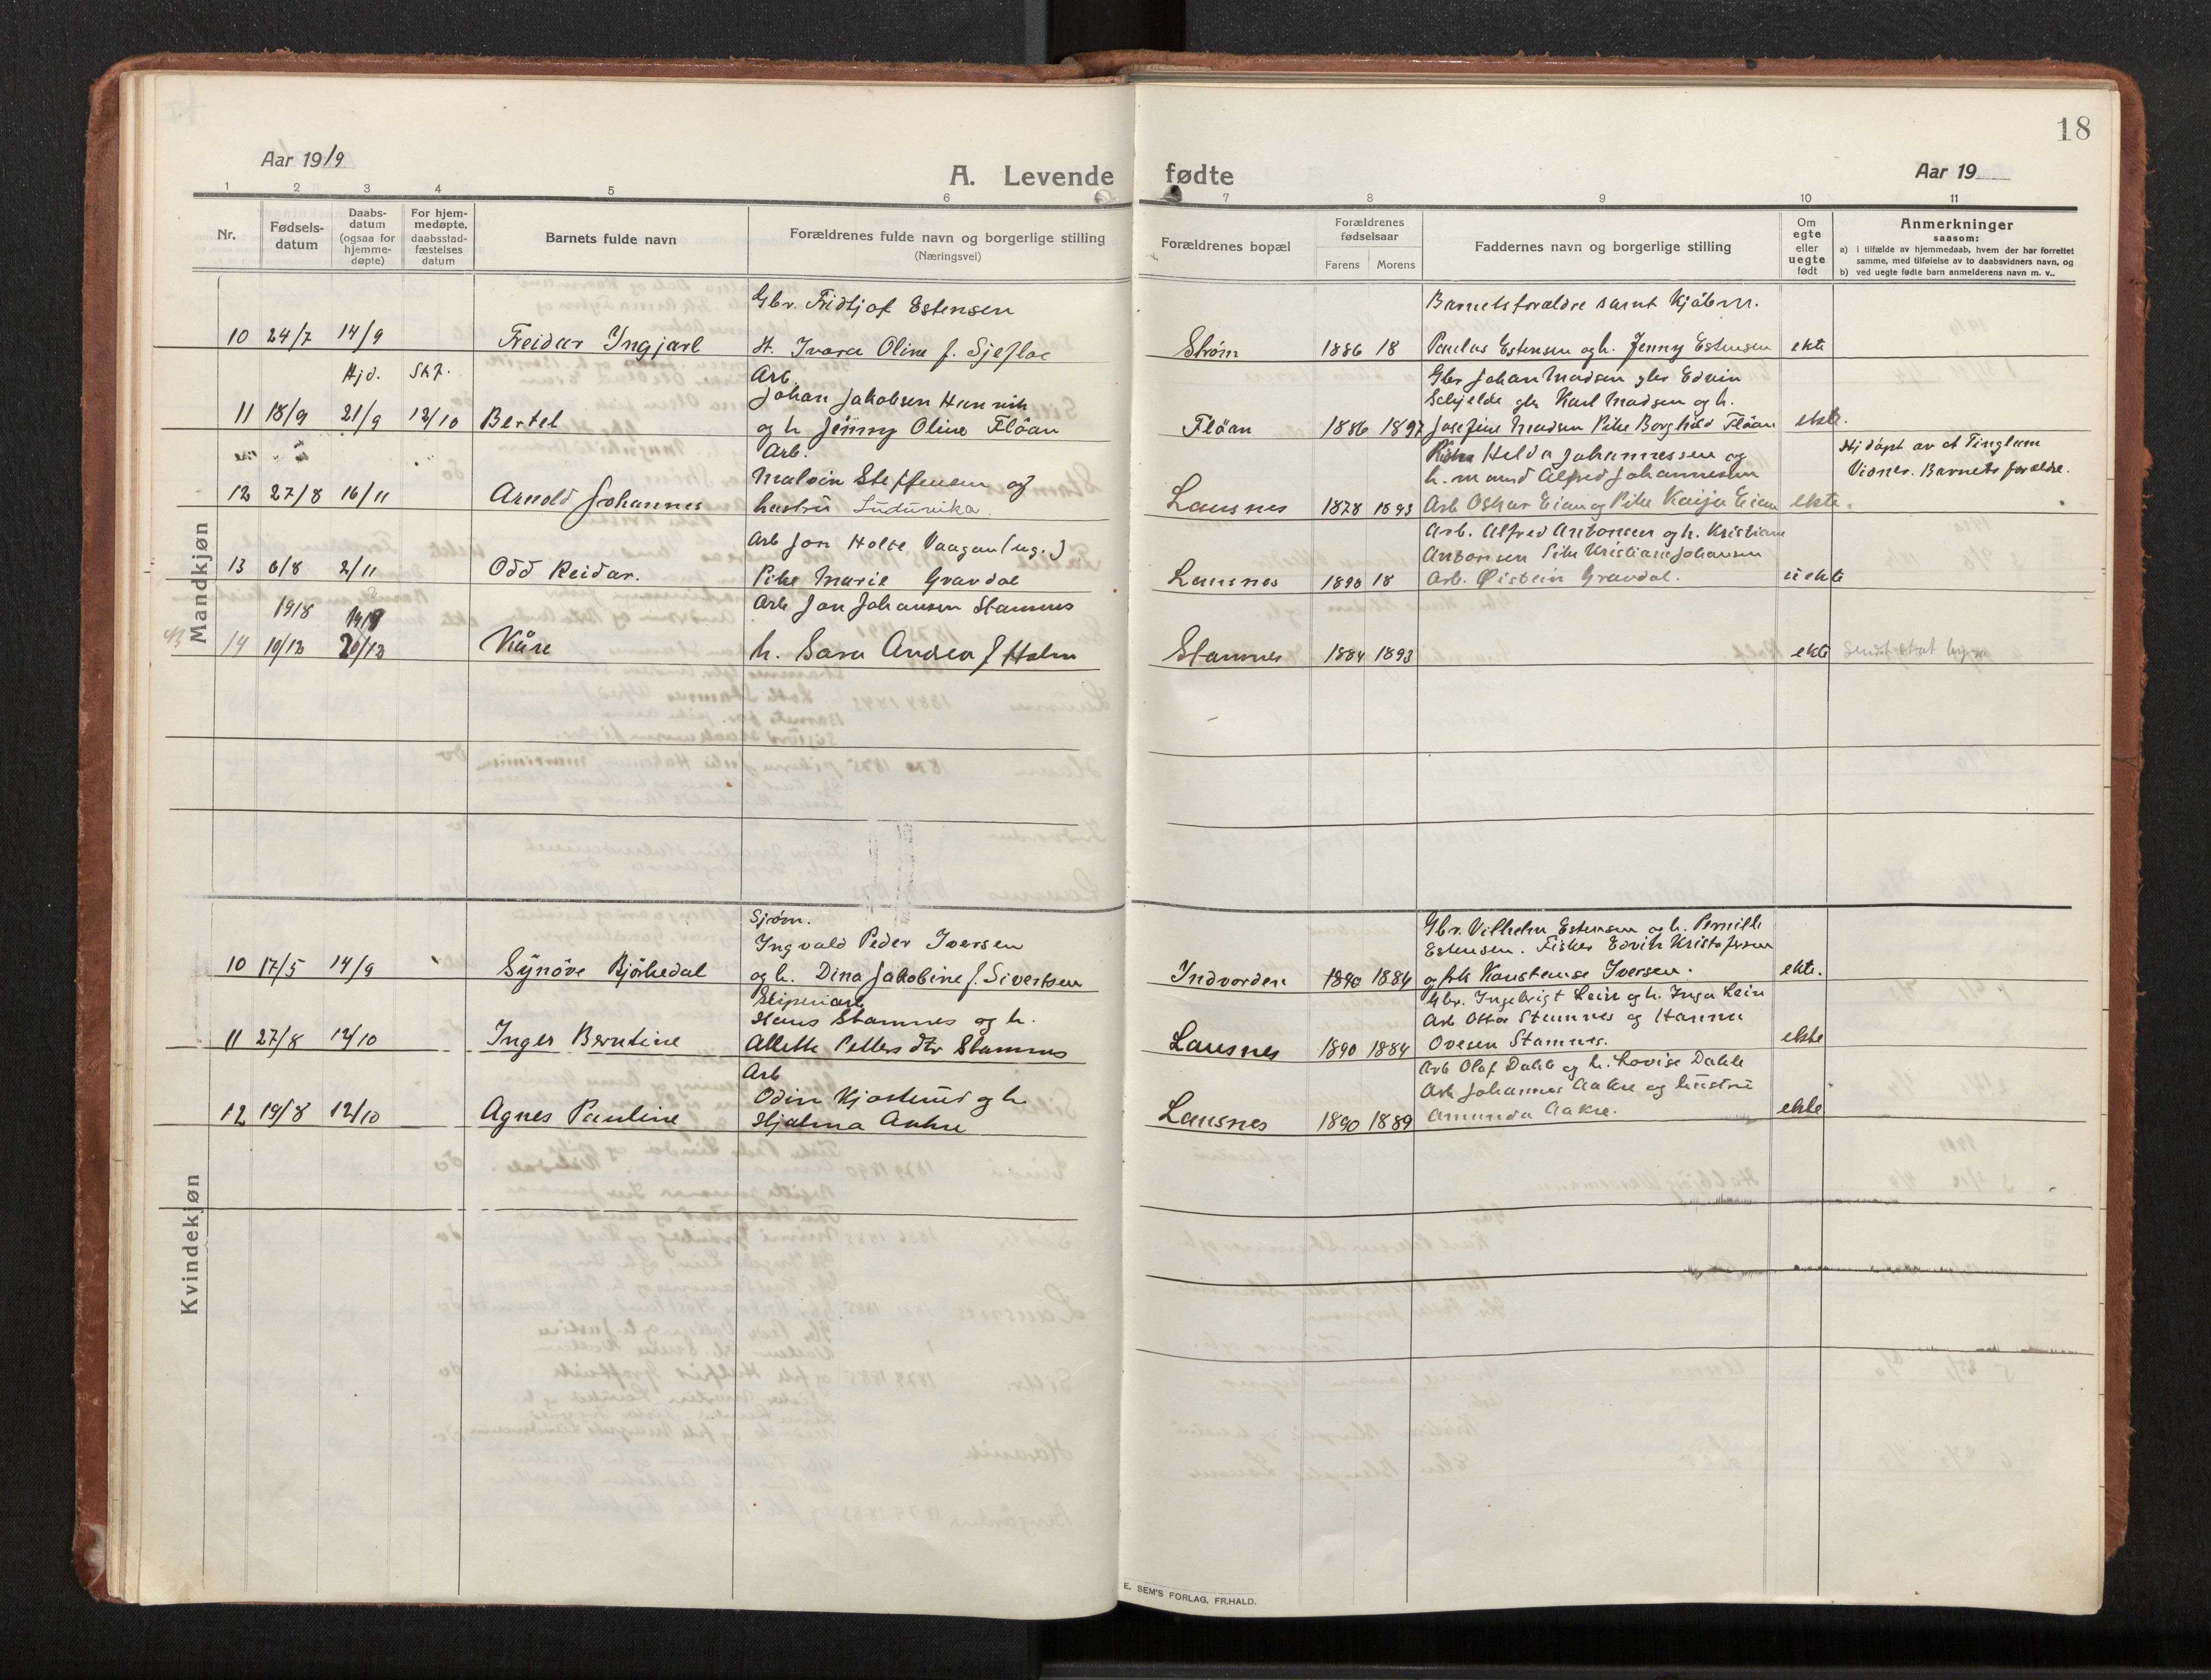 18
Aar 1919
A. Levende fødte
Aar 19
1 2 3 4 5 6 7 8 9 10 11
Nr.
Fødsels-
datum
Daabs-
datum
(ogsaa for
hjemme-
døpte)
For hjem-
medøpte,
daabsstad-
fæstelses
datum
Barnets fulde navn
Forældrenes fulde navn og borgerlige stilling
(Næringsvei)
Forældrenes bopæl
Forældrenes
fødselsaar
Farens Morens
Faddernes navn og borgerlige stilling
Om
egte
eller
uegte
født
Anmerkninger
saasom:
a) i tilfælde av hjemmedaab, hvem der har forrettet
samme, med tilføielse av to daabsvidners navn, og
b) ved uegte fødte barn anmelderens navn m. v..
Mandkjøn
Gbr. Fridtjof Estensen
Barnets forældre samt Kjøbm.
10 24/7 14/9 Reidar Ingjarl H. Ivara Oline f. Sjefloe Strøm 1886 18 Paulus Estensen og h. Jenny Estensen ekte
Hjd. Stf.
Arb.
Gbr Johan Madsen gbr Edvin
Johan Jakobsen Henrik
Schjelde gbr Karl Madsen og h.
11 18/9 21/9 12/10 Bertel og h Jenny Oline Flöan Flöan 1886 1897 Josefine Madsen Pike Borghild Flöan ekte.
Arb.
Helda Johannessen og
Hjdøpt av at Tinglum
Malvin Steffensen og
h. m mand Alfred Johannessen
Vidner. Barnets forældre.
12 27/8 16/11 Arnold Johannes hustru Ludvvika Lausnes 1878 1893 Arb Oskar Eian og Pike Kaija Eian ekte.
Arb Jon Holte Vaagan (ug.)
Arb. Alfred Antonsen og h. Kristiane
Antonsen Pike Kristiane Johansen
13 6/8 2/11 Odd Reidar. Pike Marie Gravdal Lausnes 1890 18 Arb. Øistein Gravdal. uekte
1918 1919
Arb Jon Johansen Stamnes
14 10/12 20/12 Kåre h. Sara Andrea f Holm Stamnes 1884 1893 ekte
Kvindekjøn
Sjrøm.
Gbr. Vilhelm Estensen og h. Pernille
Ingvald Peder Iversen
Estensen. Fisker Edvin Kristofersen
10 17/5 14/9 Synöve Bjöhedal og h. Dina Jakobine f. Sivertsen Indvorden 1890 1884 og frk Konstanse Iversen. ekte.
Sliperiarb
Gbr. Ingebrigt Lein og h. Inga Lein
Hans Stamnes og h.
Arb Ottar Stamnes og Hanna
11 27/8 12/10 Inger Berntine Allette Petters dtr Stamnes Lausnes 1890 1884 Ovesen Stamnes. ekte
Arb
Arb Olaf Dahle og h. Lovise Dahle
Odin Kjostmer og h
Arb Johannes Aakre og hustru
12 19/8 12/10 Agnes Pauline Hjalma Aakre Lausnes 1890 1889 Amunda Aakre. ekte
E. SEM'S FORLAG, FR.HALD.